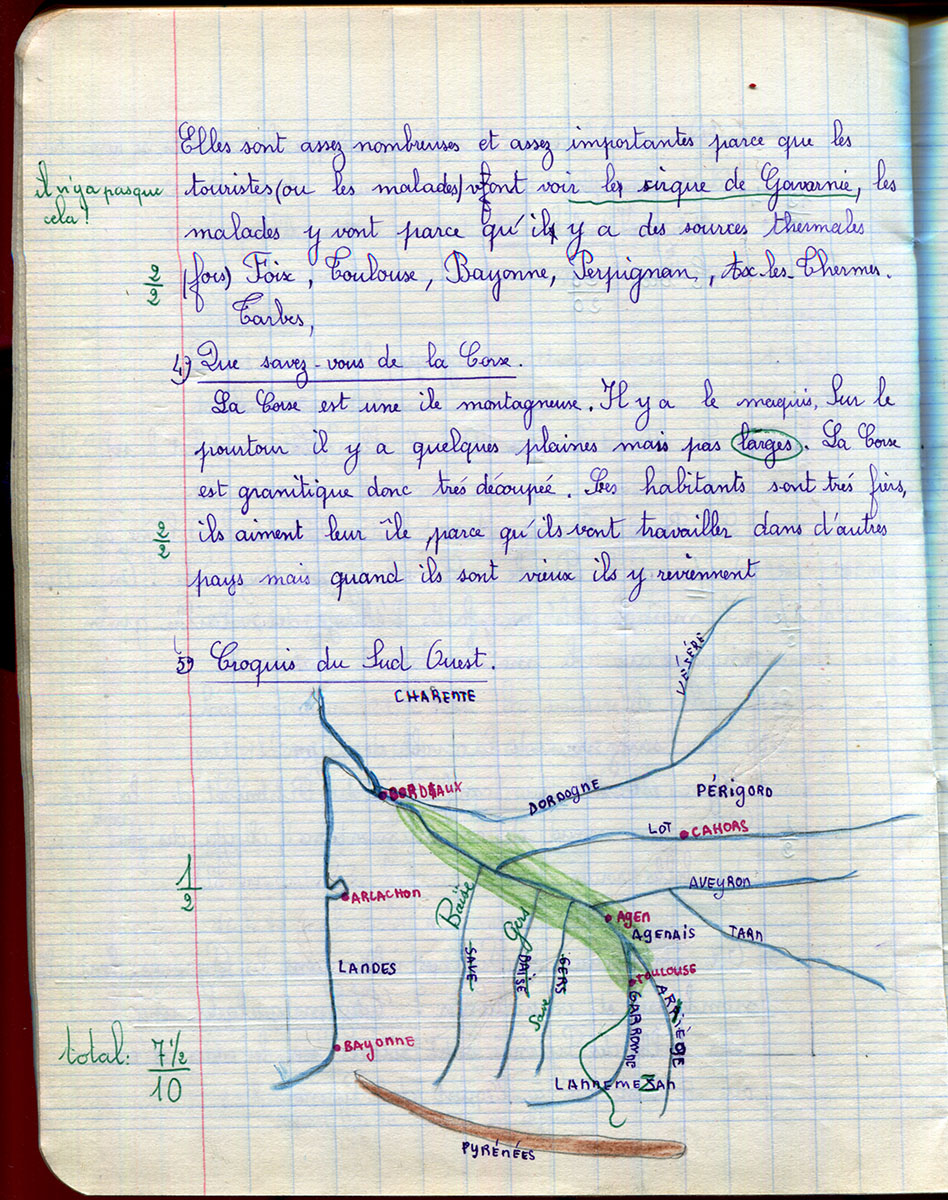 Elles sont assez nombreuses et assez importantes parce que les
il n'y a pas que
cela !
touristes (ou les malades) vont voir le cirque de Gavarnie, les
malades y vont parce qu'il y a des sources thermales
2/2
(fois) Foix, Toulouse, Bayonne, Perpignan, Ax-les-Thermes.
Tarbes,
4) Que savez-vous de la Corse.
La Corse est une ile montagneuse. Il y a le maquis, Sur le
pourtour il y a quelques plaines mais pas larges. La Corse
est granitique donc trés découpée. Les habitants sont trés fiers,
2/2
ils aiment leur île, parce qu'ils vont travailler dans d'autres
pays mais quand ils sont vieux ils y reviennent
5) Croquis du Sud Ouest.
VÉSÉRE
CHARENTE
BORDEAUX
DORDOGNE
PÉRIGORD
LOT
CAHORS
1/2
ARCACHON
AVEYRON
Baïse
Gers
AGEN
AGENAIS
TARN
SAVE
BAISE
GERS
Save
LANDES
TOULOUSE
GARRONNE
ARIÈGE
BAYONNE
total: 7 1/2
10
LANNEMEZAN
PYRÉNÉES